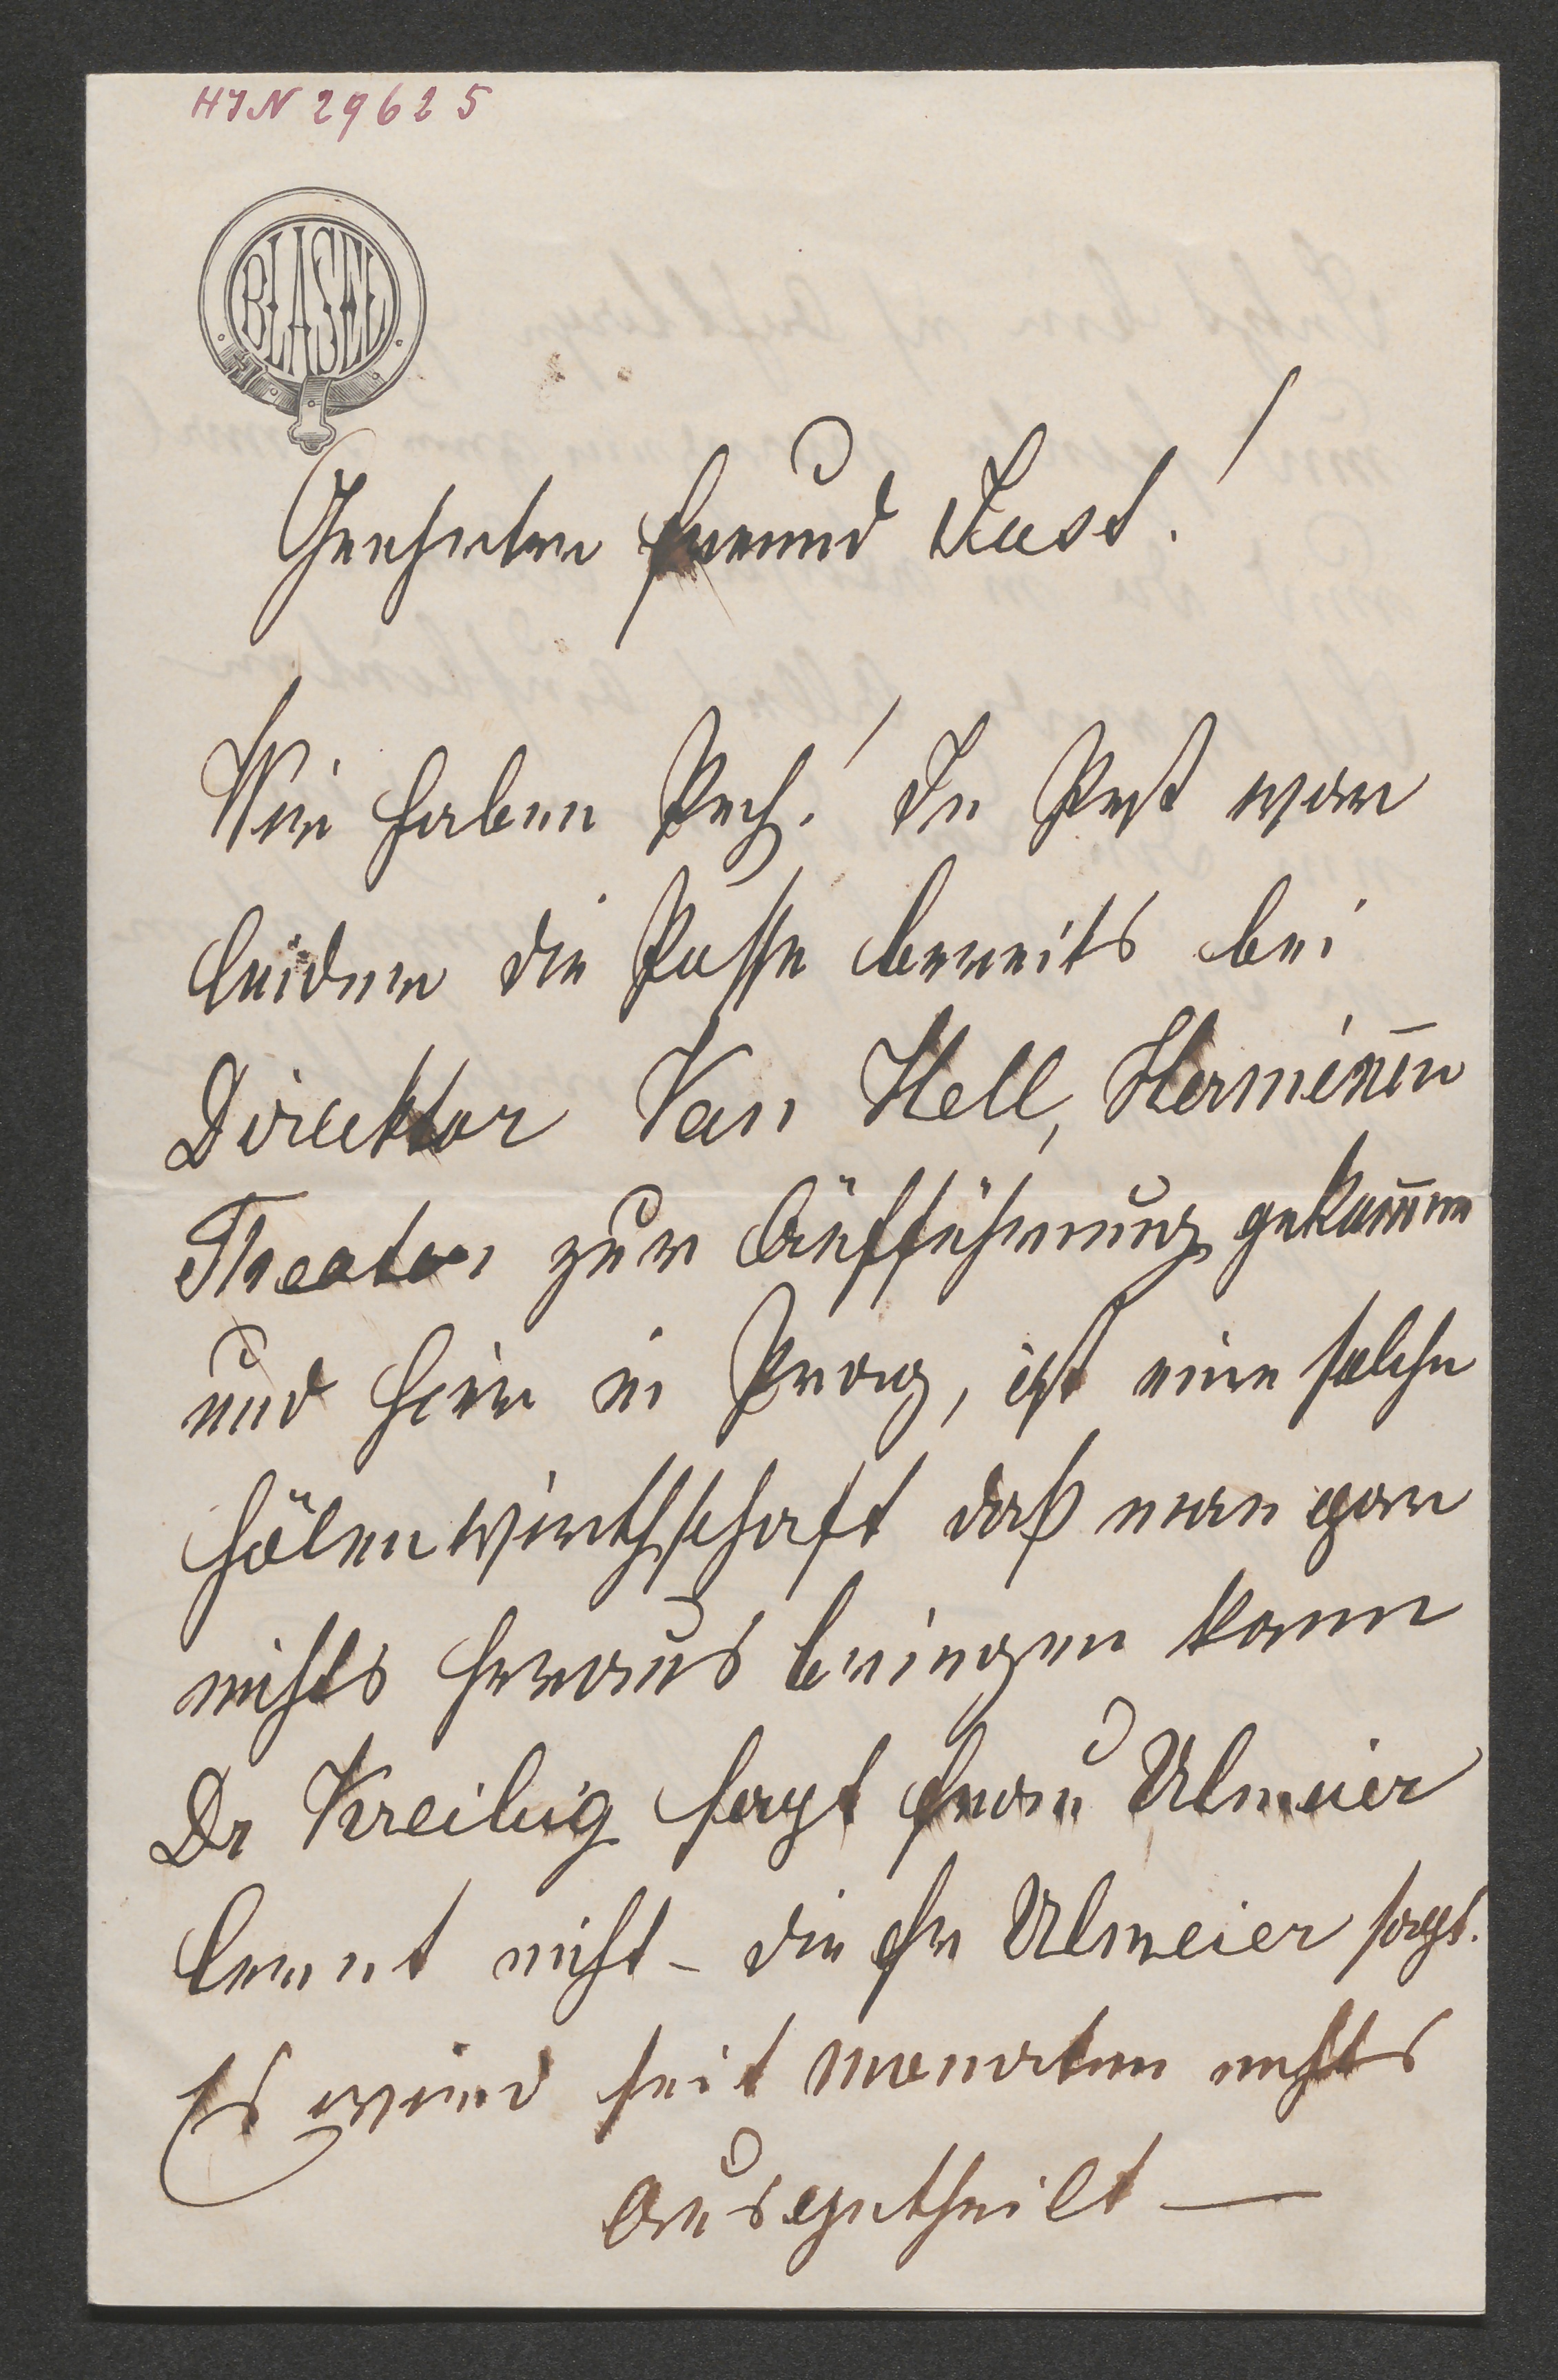 HIN 29625
BLASEL
Geehrter Freund Just!
Wir haben Pech! In Pest war
leider die Posse bereits bei
Direcktor Van Hell, Herminen
Theater zur Aufführung gekom̄en
und hier in Prag, ist eine solche
Hölenwirthschaft daß man gar
nichts heraus bringen kann
Dr Kreibig sagt Frau Ulmeier
lernt nicht – die Fr Ulmeier sagt.
Es wird seit Monaten nichts
ausgetheilt —